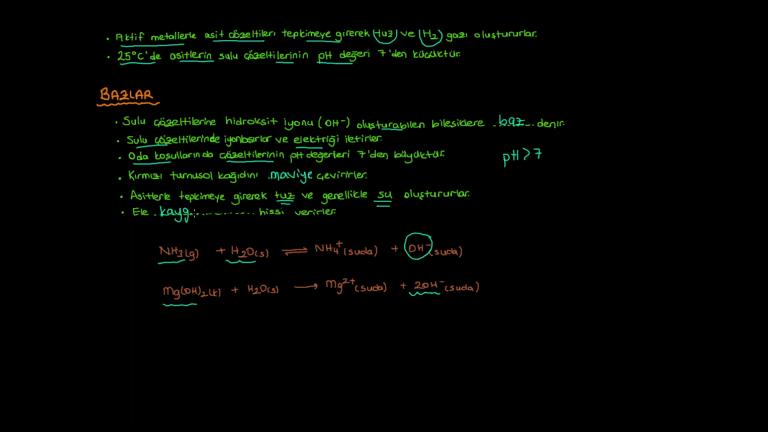 • Aktif metallerle asit çözeltileri tepkimeye girerek tuz ve (H₂) gazı oluştururlar.
• 25°C'de asitlerin sulu çözeltilerinin pH değeri 7'den küçüktür.
BAZLAR
• Sulu çözeltilerine hidroksit iyonu (OH⁻) oluşturabilen bileşiklere ..baz.. denir.
• Sulu çözeltilerinde iyonlaşırlar ve elektriği iletirler.
• Oda koşullarında çözeltilerinin pH değerleri 7'den büyüktür. pH > 7
• Kırmızı turnusol kağıdını .maviye çevirirler.
• Asitlerle tepkimeye girerek tuz ve genellikle su oluştururlar.
• Ele .kayg............... hissi verirler.
NH₃(g) + H₂O(s) ⇌ NH₄⁺(suda) + OH⁻(suda)
Mg(OH)₂(k) + H₂O(s) → Mg²⁺(suda) + 2OH⁻(suda)